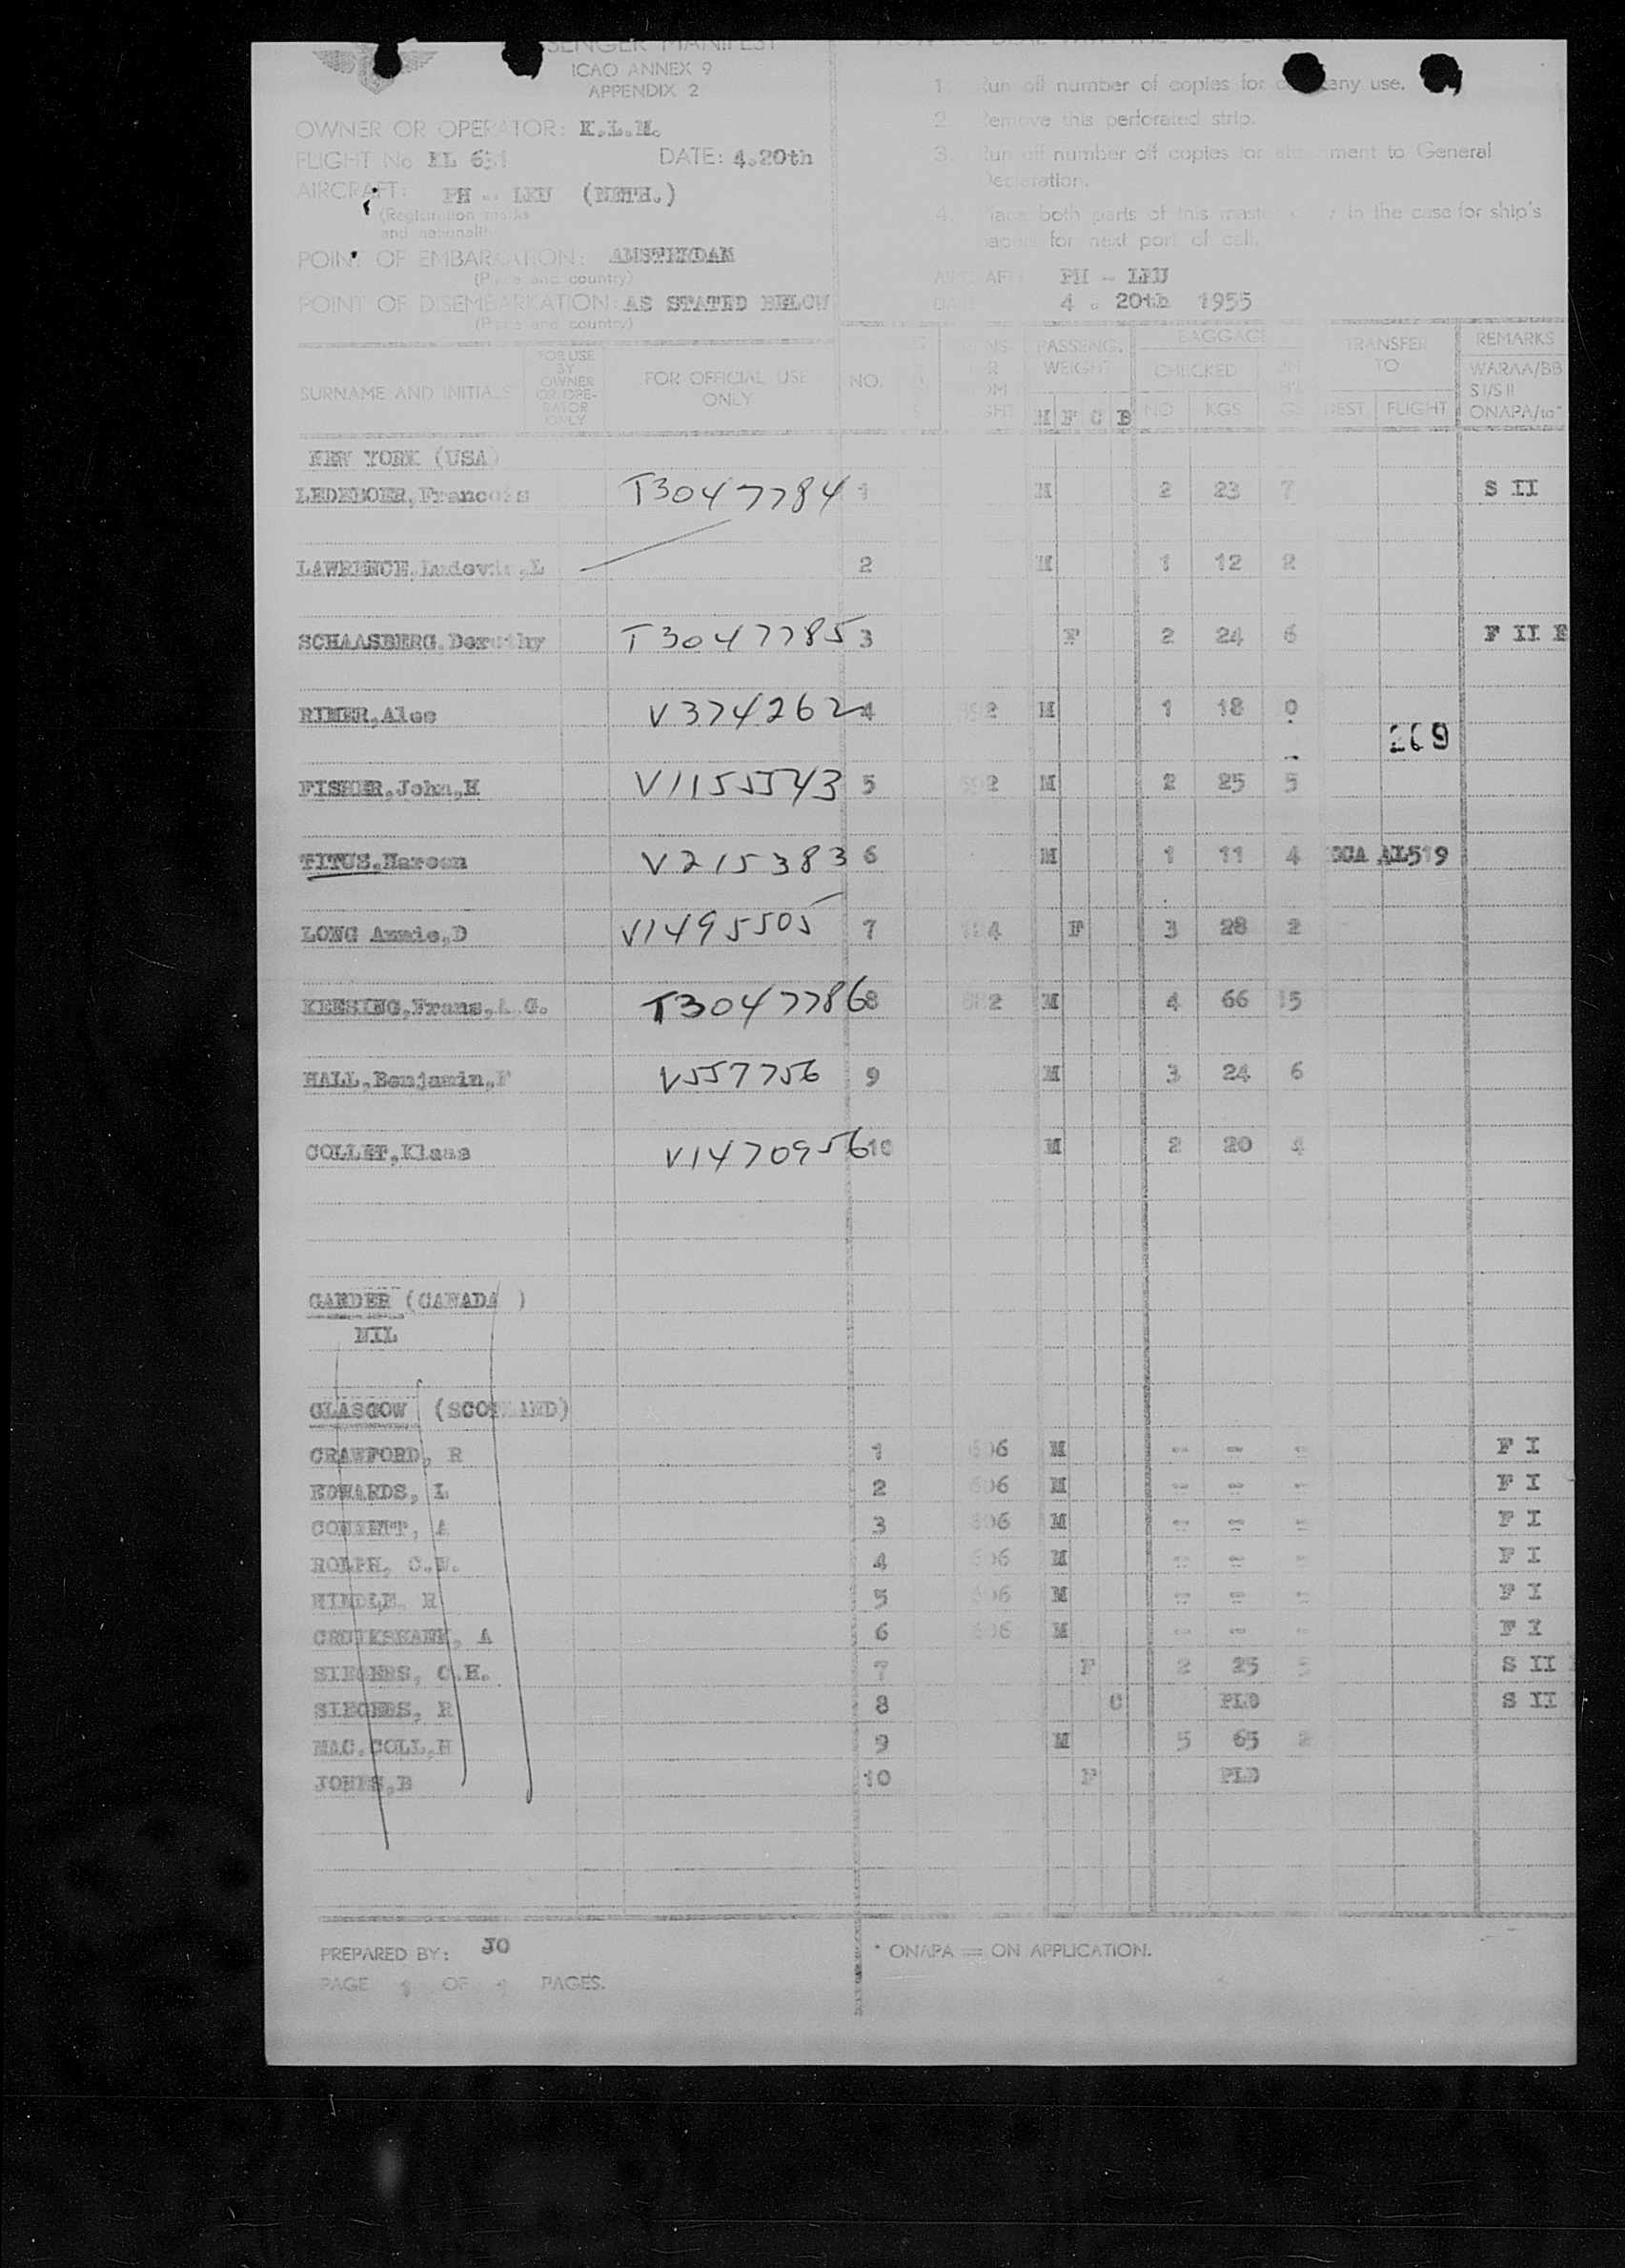 PASSENGER MANIFEST
ICAO ANNEX 9
APPENDIX 2
OWNER OR OPERATOR: K.L.M.
FLIGHT No KL 631 DATE: 4.20th
AIRCRAFT: PH - LKU (NETH.)
(Registration marks
and nationality
POINT OF EMBARKATION: AMSTERDAM
(Place and country)
POINT OF DISEMBARKATION: AS STATED BELOW
(Place and country)
1. Run off number of copies for company use.
2. Remove this perforated strip.
3. Run off number off copies for attachment to General
Declaration.
4. Place both parts of this master in the case for ship's
papers for next port of call.
AIRCRAFT PH - LKU
DATE 4 . 20th 1955
SURNAME AND INITIALS FOR USE BY OWNER OR OPE-RATOR ONLY FOR OFFICIAL USE ONLY NO. PASSENG. WEIGHT M F C B BAGGAGE CHECKED NO KGS TRANSFER TO DEST. FLIGHT REMARKS WARAA/BB S I/S II ONAPA/to*
NEW YORK (USA)
LEDEBOER,Francois T3047784 1 M 2 23 7 S II
LAWRENCE,Ludovic,L 2 M 1 12 2
SCHAASBERG.Dorothy T3047785 3 F 2 24 6 F II F
RIMER,Alec V374262 4 M 1 18 0
269
FISHER,John,H V1155543 5 M 2 25 5
TITUS,Haroon V215383 6 M 1 11 4 AL519
LONG Annie,D V1495505 7 F 3 28 2
KEESING,Frans,A.G. T3047786 8 M 4 66 15
HALL,Benjamin,F V557756 9 M 3 24 6
COLLET,Klaas V1470956 10 M 2 20 4
GANDER (CANADA )
NIL
GLASGOW (SCOTLAND)
CRAWFORD, R 1 606 M - - - F I
EDWARDS, L 2 606 M - - - F I
A 3 606 M - - - F I
ROLPH, C.W. 4 606 M - - - F I
HINDLE, H 5 606 M - - - F I
CRUIKSHANK, A 6 606 M - - - F I
SIEGERS, C.H. 7 F 2 25 5 S II
SIEGERS, R 8 C PLD S II
MAC.COLL,H 9 M 5 65 2
JONES,B 10 F PLD
PREPARED BY: JO
PAGE 1 OF 1 PAGES.
* ONAPA = ON APPLICATION.